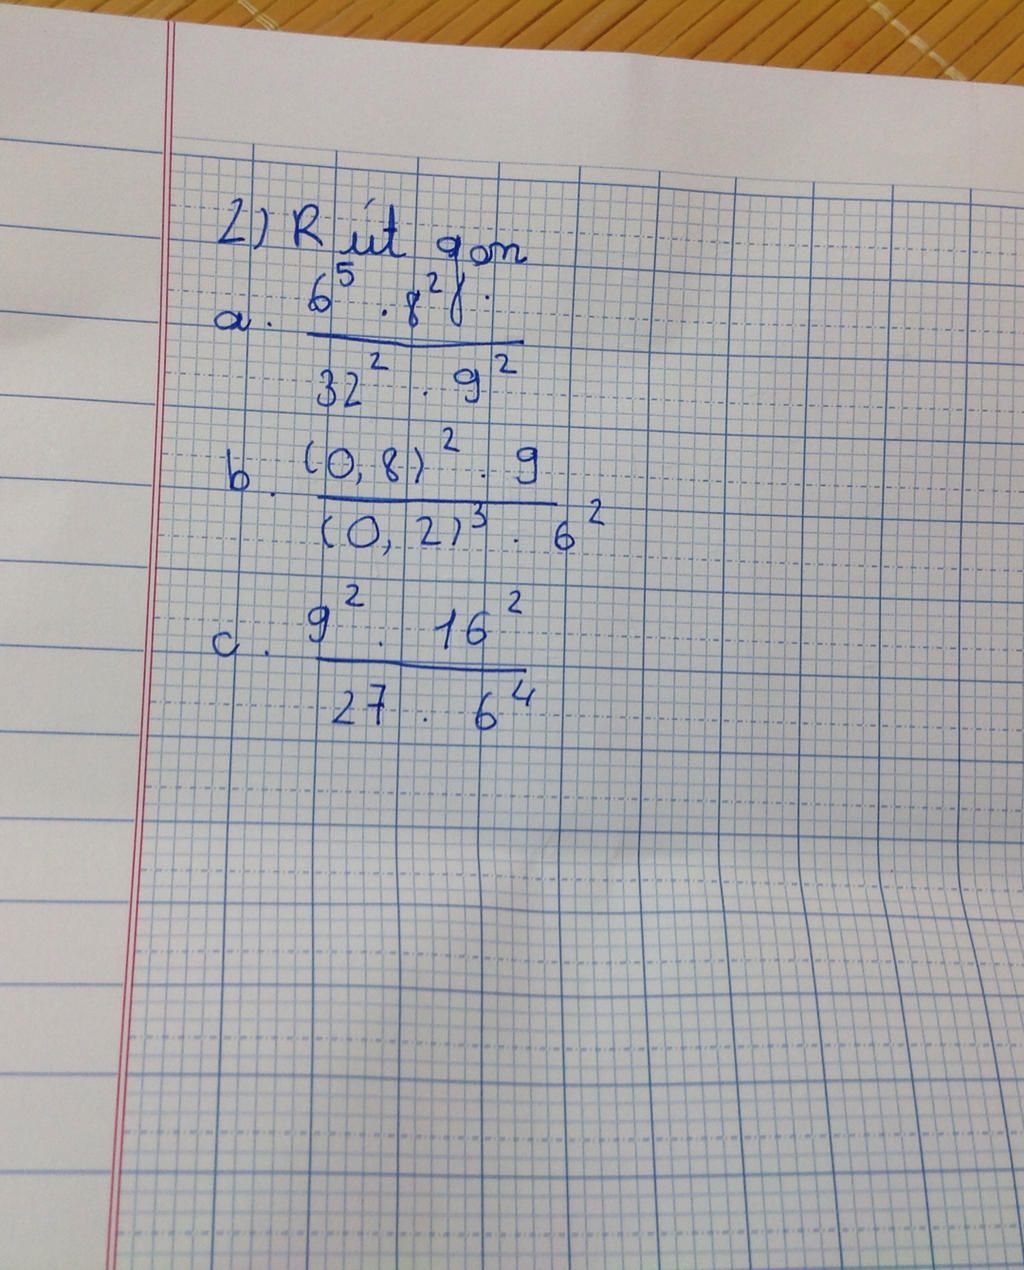 2) Rút gọn
a. 6^5 . 8^2 / 32^2 . 9^2
b. (0,8)^2 . 9 / (0,2)^3 . 6^2
c. 9^2 . 16^2 / 27 . 6^4